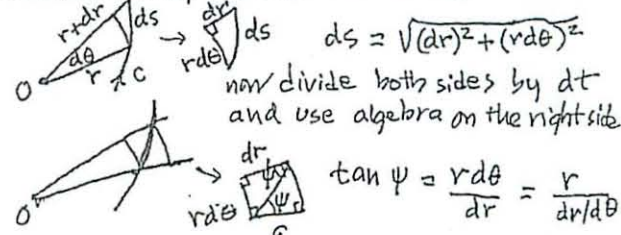 r+dr ds dr ds ds = √(dr)² + (rdθ)²
dθ r C rdθ
O
now divide both sides by dt
and use algebra on the right side
dr
ψ ψ tan ψ = rdθ/dr = r/(dr/dθ)
rdθ
O